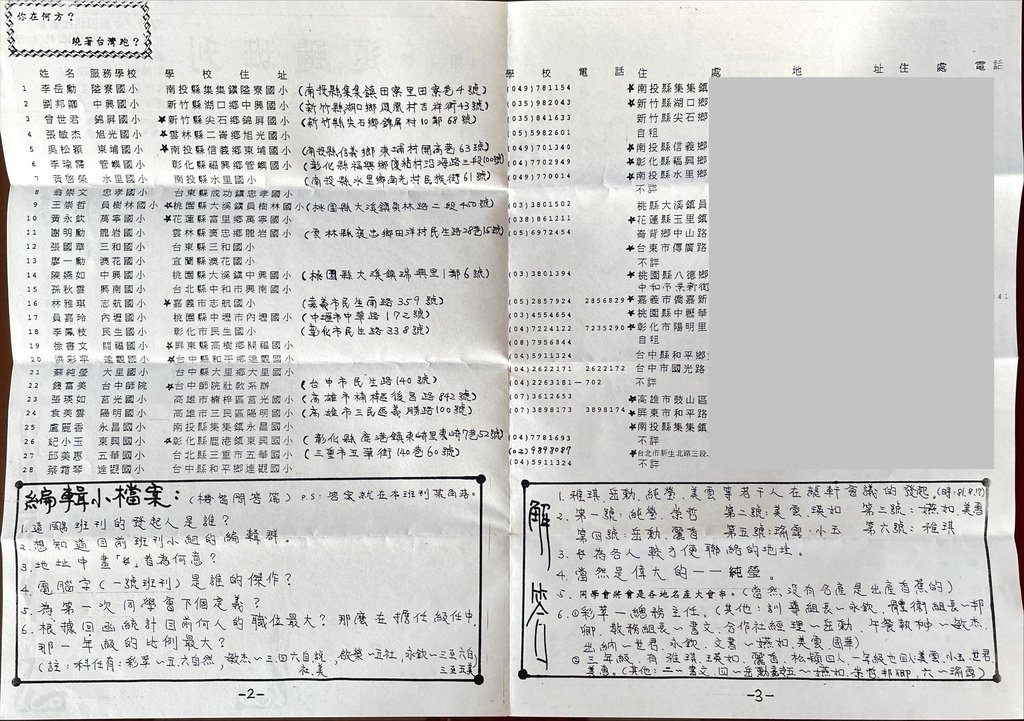 你在何方？
繞著台灣跑？
姓 名 服務學校 學 校 住 址
1 李岳勳 隘寮國小 南投縣集集鎮隘寮國小 (南投縣集集鎮田寮里田寮巷4號)
2 劉邦卿 中興國小 新竹縣湖口鄉中興國小 (新竹縣湖口鄉鳳凰村吉祥街43號)
3 曾世君 錦屏國小 ★新竹縣尖石鄉錦屏國小 (新竹縣尖石鄉錦屏村10鄰68號)
4 張敏杰 旭光國小 ★雲林縣二崙鄉旭光國小
5 吳松穎 東埔國小 ★南投縣信義鄉東埔國小 (南投縣信義鄉東埔村開高巷63號)
6 李瑞霈 管嶼國小 彰化縣福興鄉管嶼國小
7 黃啓榮 水里國小 南投縣水里國小 (南投縣水里鄉南光村民族街61號)
8 翁崇文 忠孝國小 台東縣成功鎮忠孝國小
9 王崇哲 員樹林國小 ★桃園縣大溪鎮員樹林國小 (桃園縣大溪鎮員林路二段450號)
10 黃永欽 萬寧國小 ★花蓮縣富里鄉萬寧國小
11 謝明勳 龍岩國小 雲林縣褒忠鄉龍岩國小 (雲林縣褒忠鄉田洋村民生路28巷15號)
12 張國華 三和國小 台東縣三和國小
13 廖一勳 澳花國小 宜蘭縣澳花國小
14 陳嬿如 中興國小 桃園縣大溪鎮中興國小 (桃園縣大溪鎮瑞興里1鄰6號)
15 孫秋雲 興南國小 台北縣中和市興南國小
16 林雅琪 志航國小 ★嘉義市志航國小 (嘉義市民生南路359號)
17 員嘉玲 內壢國小 桃園縣中壢市內壢國小 (中壢市中華路172號)
18 李鳳枝 民生國小 彰化市民生國小 (彰化市民生路338號)
19 徐書文 關福國小 ★屏東縣高樹鄉關福國小
20 洪彩萍 達觀國小 ★台中縣和平鄉達觀國小
21 蘇純瑩 大里國小 台中縣大里鄉大里國小
22 錢富美 台中師院 ★台中師院社教系辦 (台中市民生路140號)
23 張瑛如 莒光國小 高雄市楠梓區莒光國小 (高雄市楠梓區後昌路842號)
24 袁美雲 陽明國小 高雄市三民區陽明國小 (高雄市三民區義勝路100號)
25 盧麗香 永昌國小 南投縣集集鎮永昌國小
26 紀小玉 東興國小 ★彰化縣鹿港鎮東興國小 (彰化縣鹿港鎮東崎里東崎7巷52號)
27 邱美惠 五華國小 台北縣三重市五華國小 (三重市五華街140巷60號)
28 蔡霜琴 達觀國小 台中縣和平鄉達觀國小
編輯小檔案：(機智問答篇) P.S：答案就在本班刊某角落。
1.這期班刊的發起人是誰？
2.想知道目前班刊小組的編輯群。
3.地址中畫「★」者為何意？
4.電腦字(一號班刊)是誰的傑作？
5.為第一次同學會下個定義？
6.根據回函統計目前何人的職位最大？那麼在擔任級任中，
那一年級的比例最大？
-2-
學 校 電 話 住 處 地 址 住 處 電 話
(049)781154 ★南投縣集集鎮
(035)982043 ★新竹縣湖口鄉
(035)841633 新竹縣尖石鄉
(05)5982601 自租
(049)701340 ★南投縣信義鄉
(04)7702949 ★彰化縣福興鄉
(049)770014 ★南投縣水里鄉
不詳
(03)3801502 桃縣大溪鎮員
(038)861211 ★花蓮縣玉里鎮
(05)6972454 崙背鄉中山路
★台東市傳廣路
不詳
(03)3801394 ★桃園縣八德鄉
中和市景新街
(05)2857924 2856829 ★嘉義市僑嘉新
(03)4554654 ★桃園縣中壢華
(04)7224122 7235290 ★彰化市陽明里
(08)7956844 自租
(04)5911324 台中縣和平鄉
(04)2622171 2622172 台中市國光路
(04)2263181-702 不詳
(07)3612653 ★高雄市鼓山區
(07)3898173 3898174 ★屏東市和平路
★南投縣集集鎮
(04)7781693 不詳
(02)9898087 ★台北市新生北路三段
(04)5911324 不詳
解答
1.雅琪.岳勳.純瑩.美雲等若干人在龍軒會議的發起。(時:81.8.17)
2.第一號：純瑩.崇哲 第二號：美雲.瑛如 第三號：嬿如.美惠
第四號：岳勳.麗香 第五號：瑞霈.小玉 第六號：雅琪
3.★為各人較方便聯絡的地址。
4.當然是偉大的——純瑩。
5.同學會將會是各地名產大會串。(當然,沒有名產是出產香蕉的)
-3-